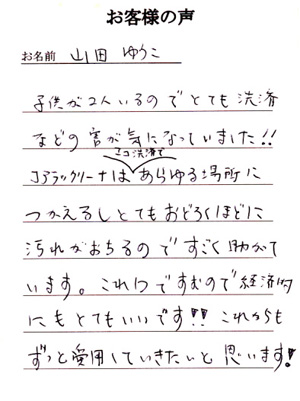 お客様の声
お名前 山田 ゆうこ
子供が2人いるのでとても洗済
などの害が気になっていました!!
エコ洗済で
Jアラックリーナは あらゆる場所に
つかえるしとてもおどろくほどに
汚れがおちるのですごく助かって
います。これ1つですむので経済的
にもとてもいいです!! これからも
ずっと愛用していきたいと思います!